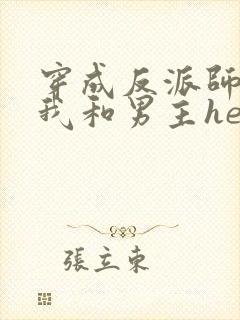 穿成反派師
我和男主he
張立東